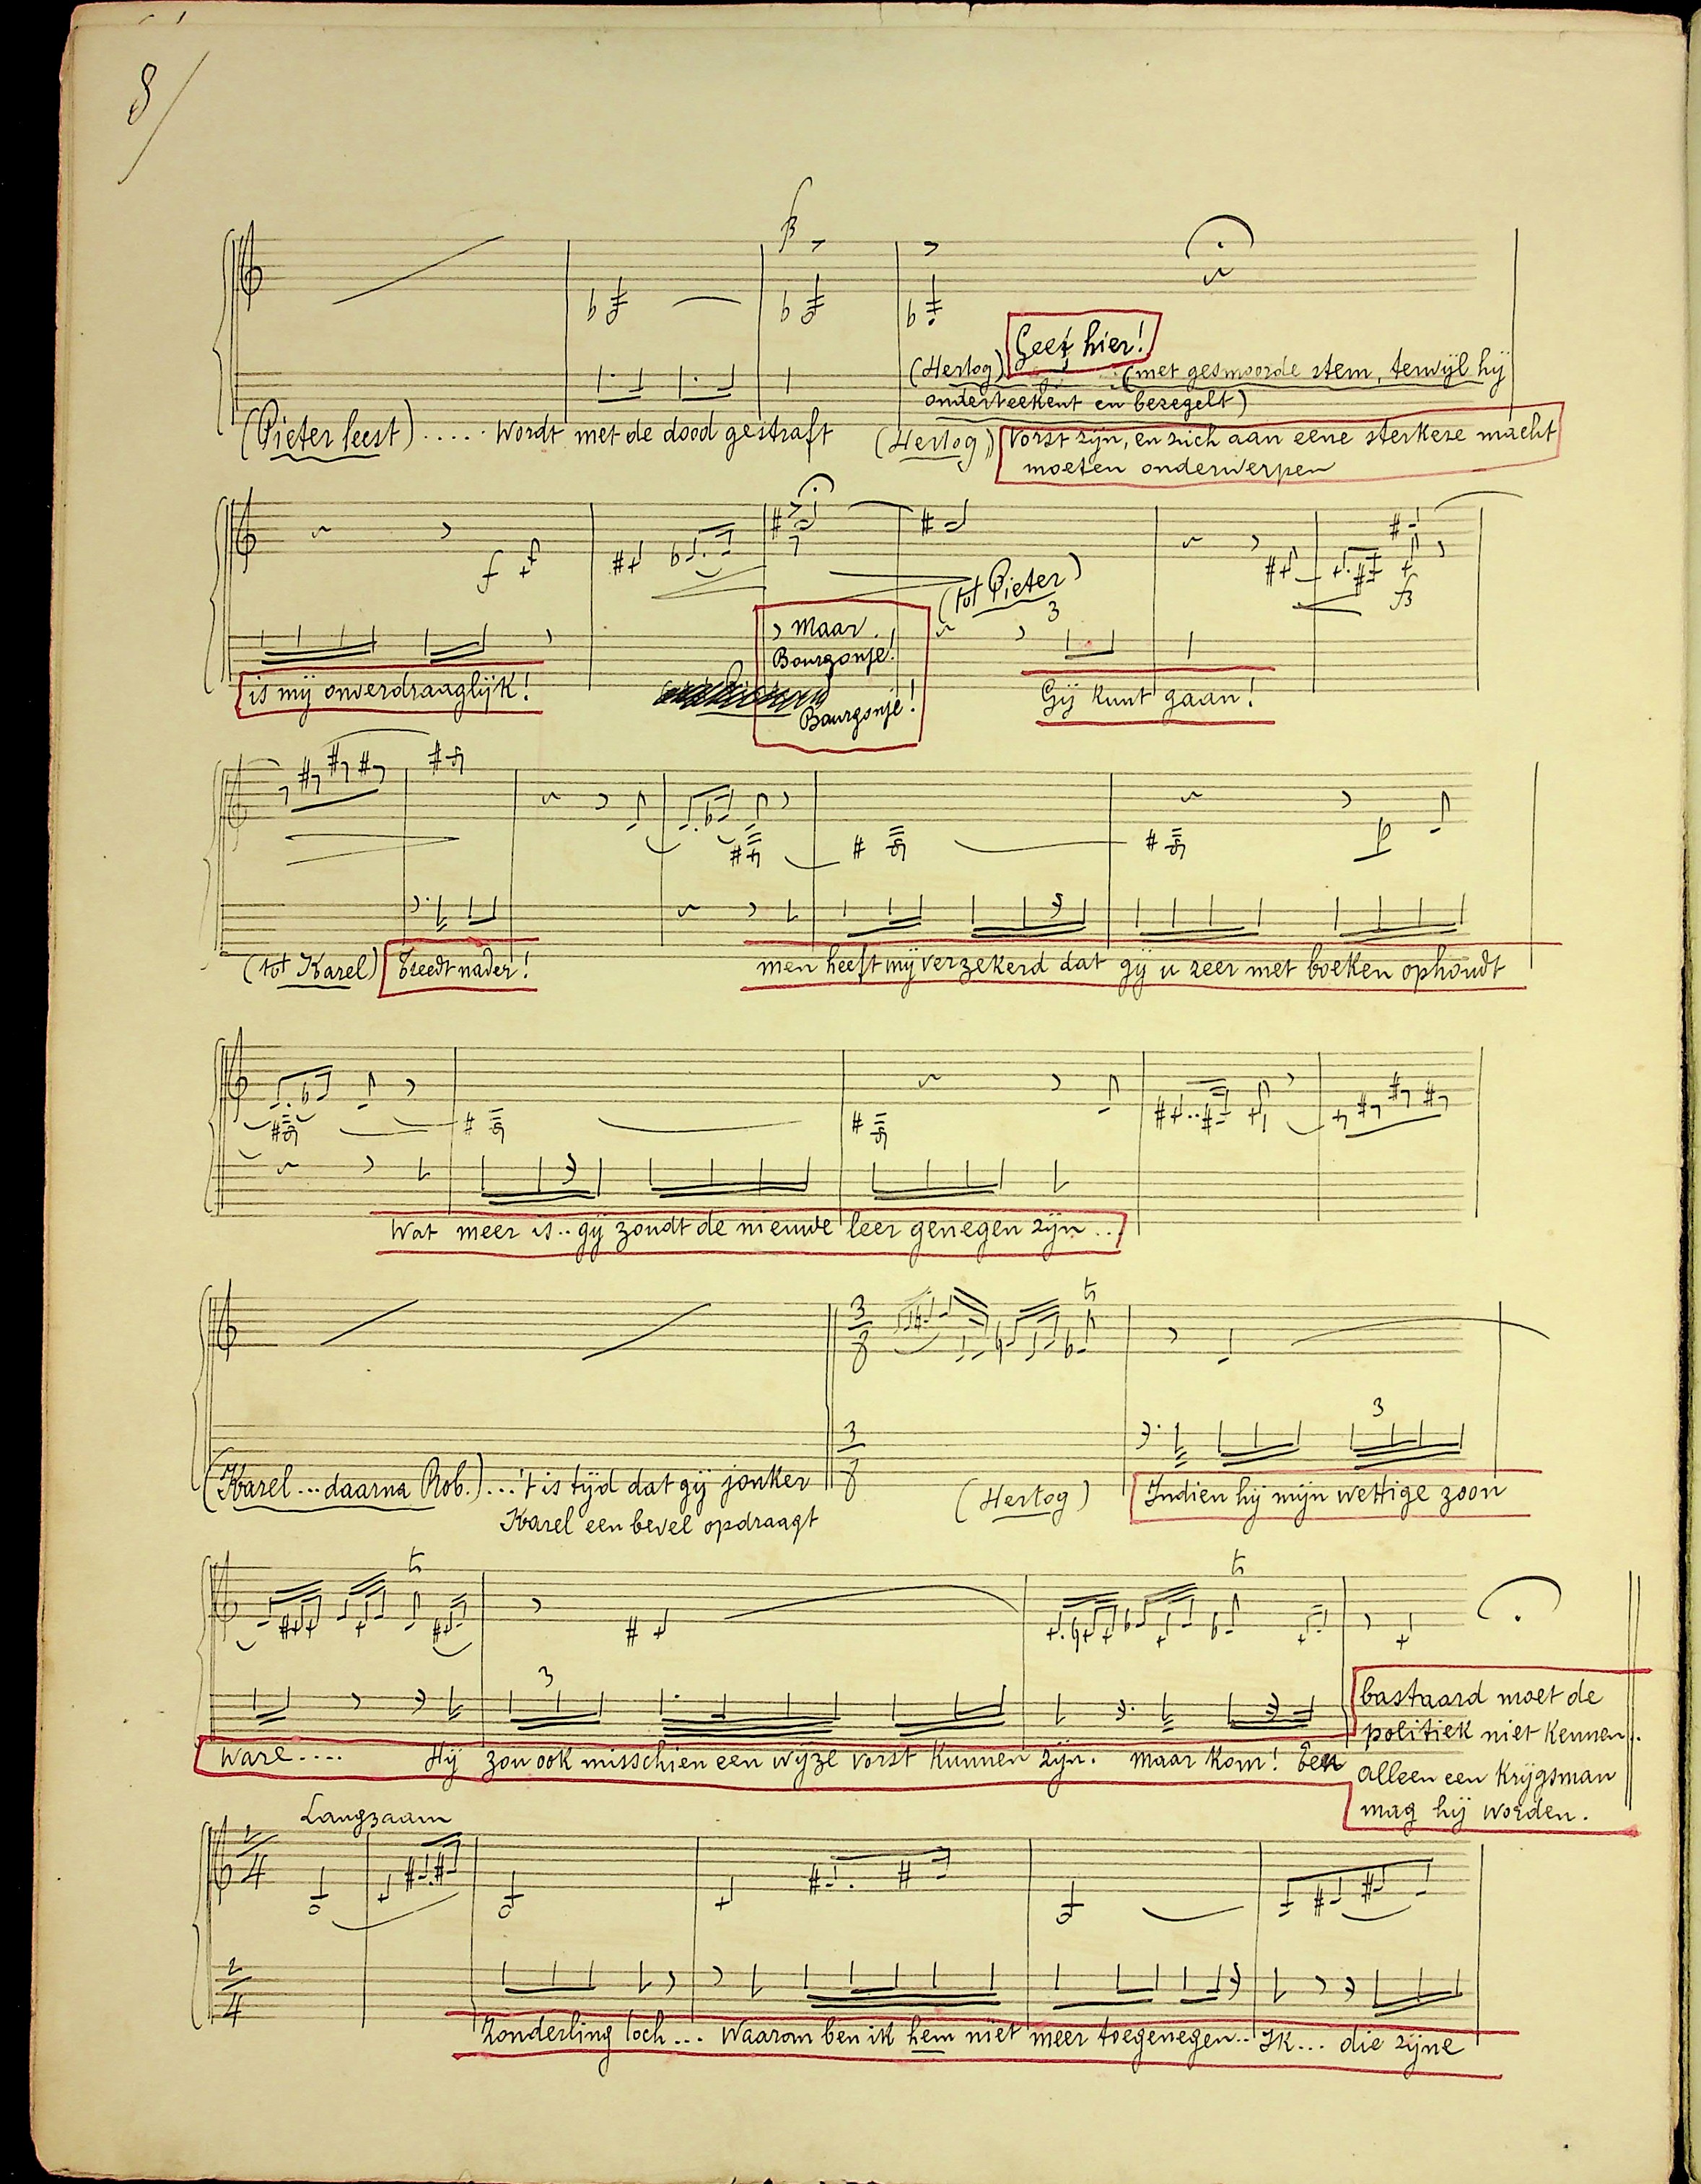 8/
Geef hier!
(Hertog) (met gesmoorde stem, terwijl hij
onderteekent en bezegelt)
(Pieter leest) ..... wordt met de dood gestraft (Hertog) Vorst zijn, en zich aan eene sterkere macht
moeten onderwerpen
(tot Pieter)
3
Maar
Bourgonje!
is mij onverdraaglijk! Bourgonje! Gij kunt gaan!
(tot Karel) Treedt nader! men heeft mij verzekerd dat gij u zeer met boeken ophoudt
Wat meer is.. gij zoudt de nieuwe leer genegen zijn...
3/8
3
3/8
(Karel... daarna Rob.)...'t is tijd dat gij jonker (Hertog) Indien hij mijn wettige zoon
Karel een bevel opdraagt
3
ware.... Hij zou ook misschien een wijze vorst kunnen zijn. maar kom! Een bastaard moet de
politiek niet kennen..
alleen een krijgsman
mag hij worden.
Langzaam
2/4
2/4
Zonderling toch... Waarom ben ik hem niet meer toegenegen.. Ik... die zijne